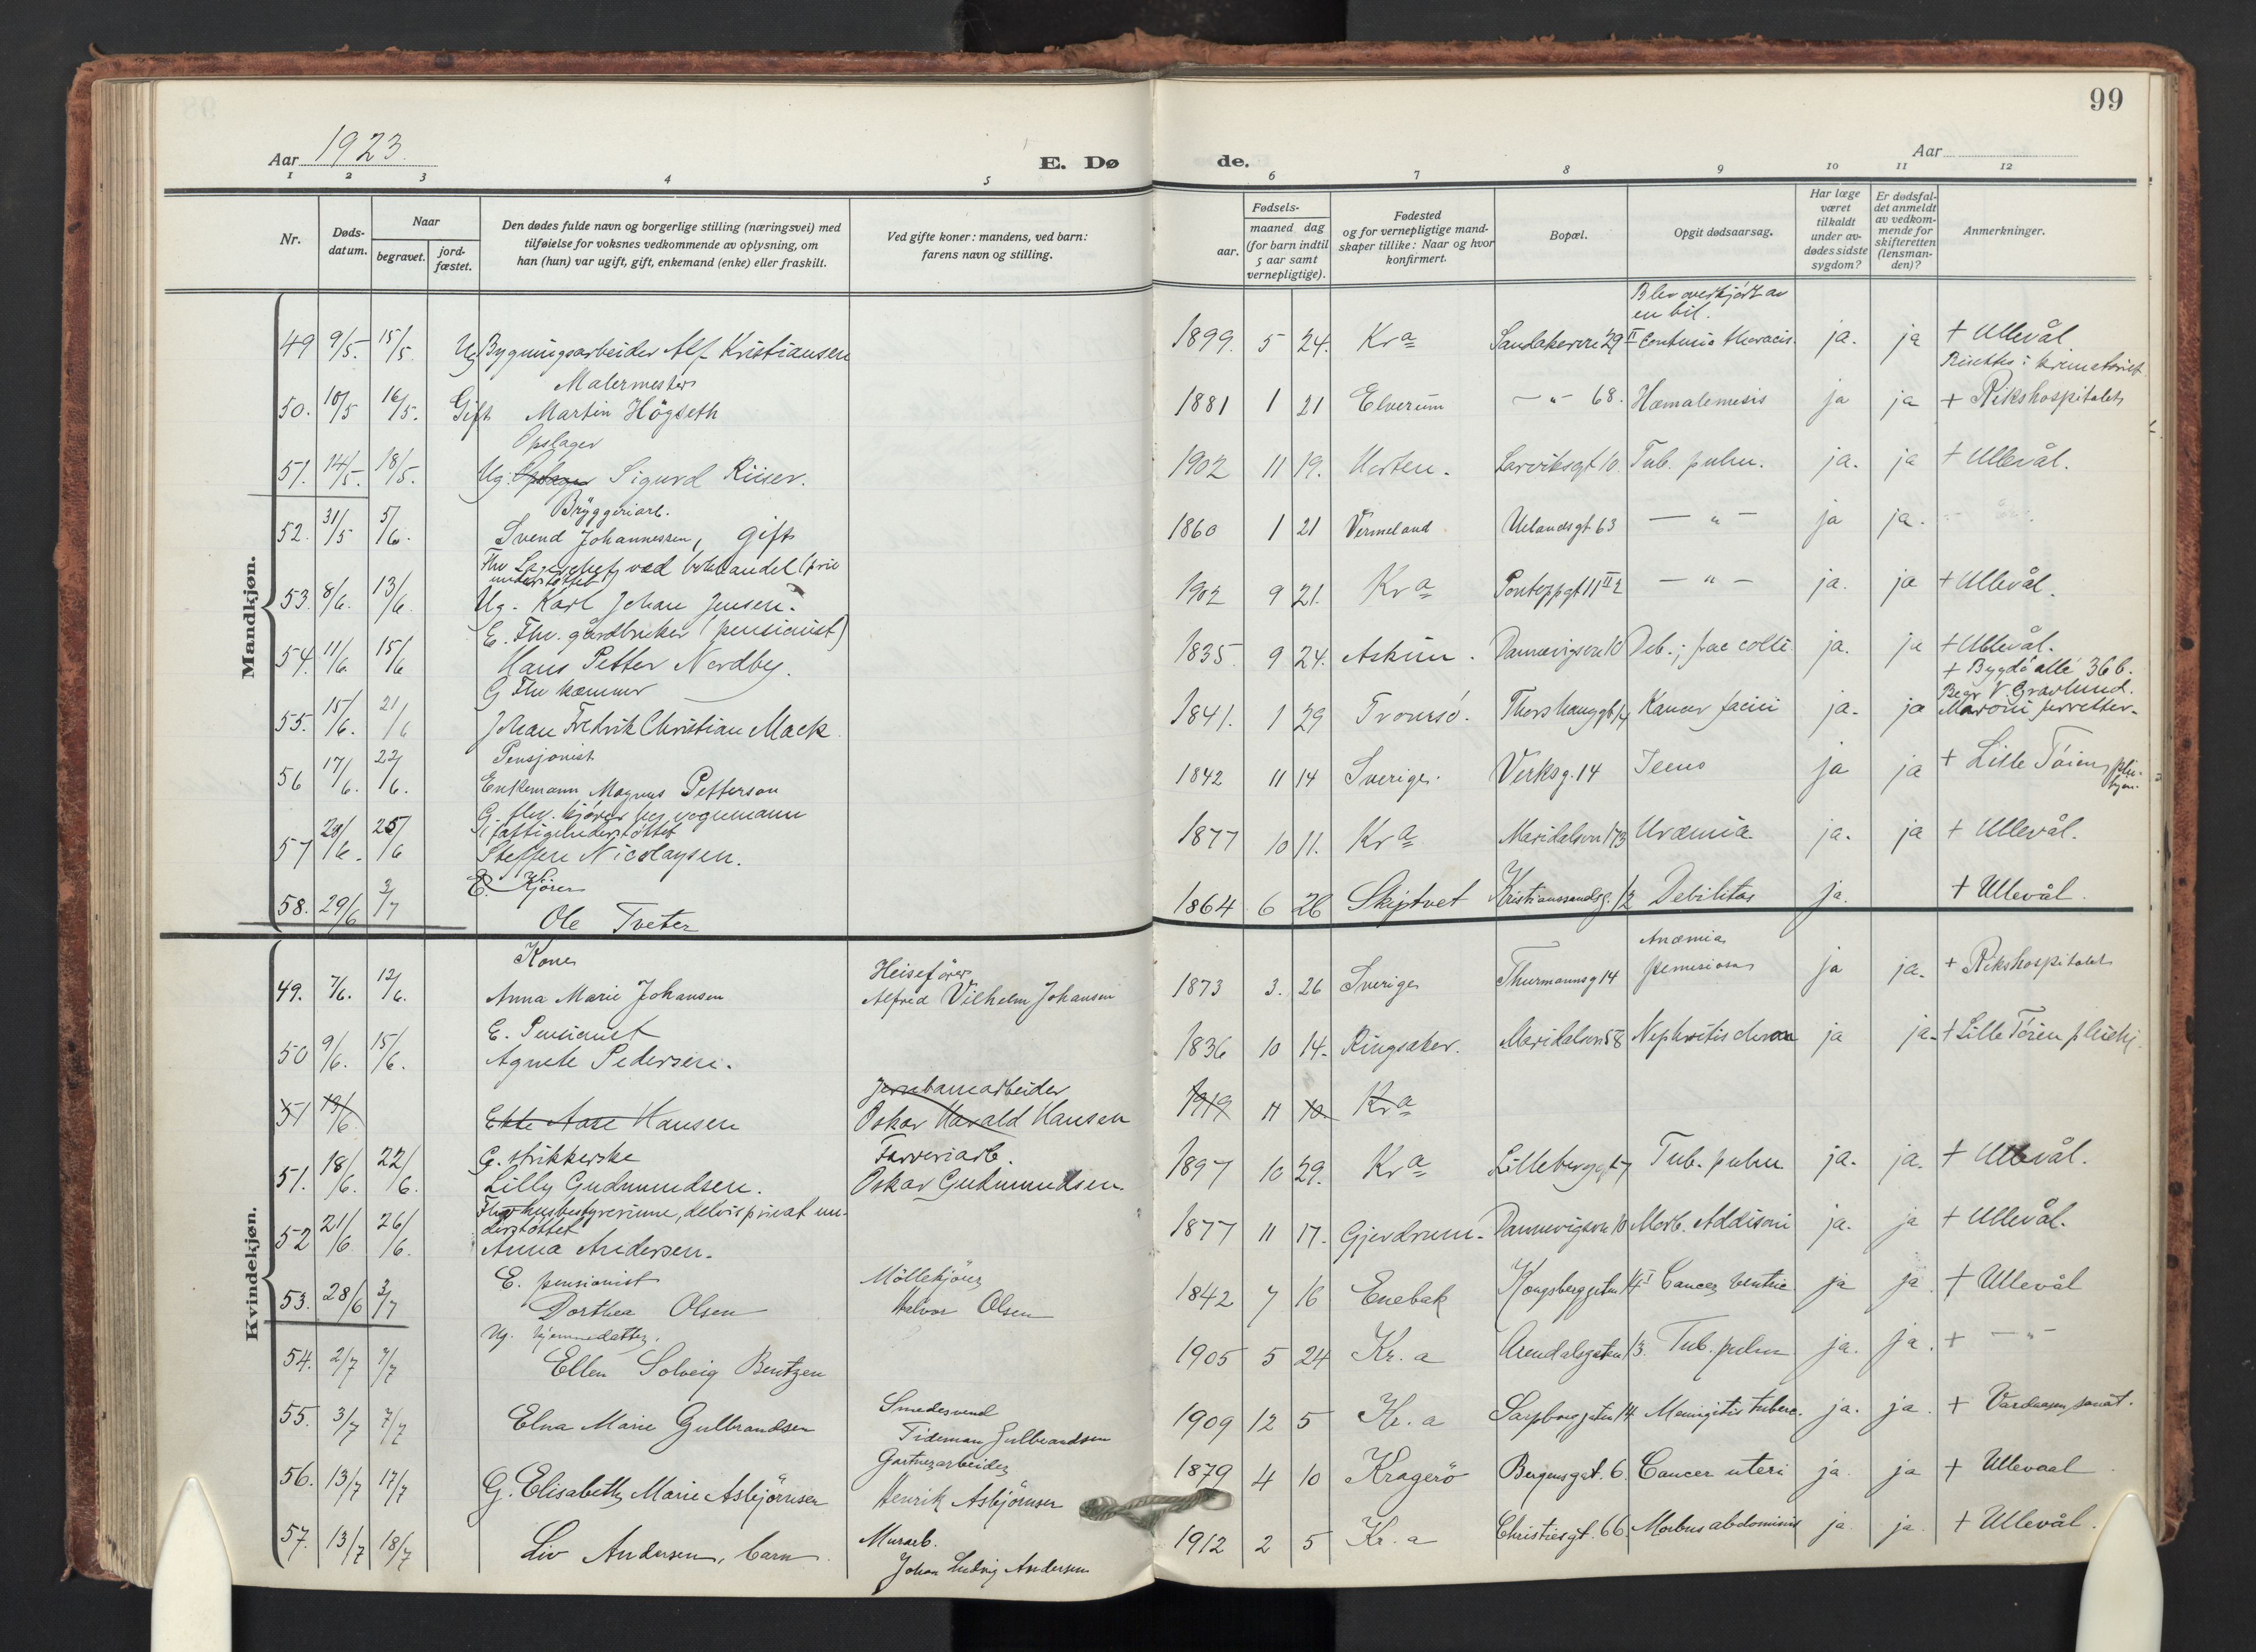 99
Aar 1923.
E. Dø
de.
Aar
1 2 3 4 5 6 7 8 9 10 11 12
Nr.
Døds-
datum.
Naar
begravet.
jord-
fæstet.
Den dødes fulde navn og borgerlige stilling (næringsvei) med
tilføielse for voksnes vedkommende av oplysning, om
han (hun) var ugift, gift, enkemand (enke) eller fraskilt.
Ved gifte koner: mandens, ved barn:
farens navn og stilling.
Fødsels-
aar.
maaned dag
(for barn indtil
5 aar samt
vernepligtige).
Fødested
og for vernepligtige mand-
skaper tillike: Naar og hvor
konfirmert.
Bopæl.
Opgit dødsaarsag.
Har læge
været
tilkaldt
under av-
dødes sidste
sygdom?
Er dødsfal-
det anmeldt
av vedkom-
mende for
skifteretten
(lensman-
den)?
Anmerkninger.
Mandkjøn.
Blev overkjørt av
en bil.
49 9/5. 15/5 Ug Bygningsarbeider Alf Kristiansen 1899. 5 24. Kra Sandakerveien 29 II Contusio thoracis. ja. ja + Ullevål
Bisettes i krematoriet
Malermester
50. 10/5 16/5. Gift Martin Högseth 1881 1 21 Elverum — " — 68. Hæmatemesis ja ja + Rikshospitalet
Opslager
51. 14/5. 18/5. Ug. Opslager Sigurd Riiser. 1902 11 19. Horten. Larviksgt 10 Tub. pulm. ja. ja + Ullevål.
Bryggeriarb.
52. 31/5 5/6. Svend Johannessen, gift 1860 1 21 Vermeland Uelandsgt 63 — " — ja ja.
Fhv Lagerchef ved bokhandel (priv
understøttet)
53. 8/6. 13/6. Ug. Karl Johan Jensen. 1902 9 21. Kra Pontoppgt 11 II 2 — " — ja. ja + Ullevål.
E. Fhv. gårdbruker (pensionist)
54. 11/6. 15/6 Hans Petter Nordby. 1835. 9 24. Askim. Dannevigsvn 10 Deb.; frac colli ja. ja + Ullevål.
G Fhv kæmner
+ Bygdö allé 36 b.
Begr V. Gravlund.
55. 15/6. 21/6 Johan Fredrik Christian Mack. 1841. 1 29 Tromsö. Thorshauggt 14 Kancer faciei ja. ja
Pensjonist
56 17/6. 22/6. Enkemann Magnus Petterson 1842 11 14 Sverige. Verksg. 14 Ileus ja ja + Lille Töien pleie-
hjem.
G. fhv. kjörer hos vognmann
fattigunderstöttet
57 20/6. 25/6 Steffen Nicolaysen. 1877 10 11. Kra Maridalsvn 173 Uræmia ja. ja + Ullevål.
E. Kjörer
58. 29/6 3/7 Ole Tveter 1864 6 26 Skiptvet Kristianssandsg. 12 Debilitas ja. + Ullevål.
Kvindekjøn.
Kone Heisefører Anæmia
49. 7/6. 12/6. Anna Marie Johansen Alfred Vilhelm Johansen 1873 3. 26 Sverige Thurmannsg 14 perniciosa ja ja. + Rikshospitalet
E. Pensionist
50 9/6. 15/6. Agnete Pedersen. 1836 10 14. Ringsaker. Maridalsvn 58 Nephritis chron ja ja. + Lille Töien pleiehj.
Jernbanearbeider
51 13/6 Aase Hansen Oskar Harald Hansen 1919 11 10 Kra
G. strikkerske Farveriarb.
51. 18/6. 22/6. Lilly Gudmundsen. Oskar Gudmundsen. 1897 10 29. Kra Lilleberggt 7 Tub. pulm ja. ja. + Ullevål.
Fhv husbestyrerinne, delvis privat un-
derstöttet
52 21/6 26/6. Anna Andersen. 1877 11 17. Gjerdrum. Dannevigsvn 10 Morb. Addisoni ja. ja + Ullevål.
E. pensionist Möllekjörer
53. 28/6 3/7 Dorthea Olsen Halvor Olsen 1842 7 16 Enebak Kongsberggaten 14 I Cancer ventric. ja ja + Ullevål
Ug. hjemmedatter.
54. 2/7 7/7 Ellen Solveig Bentzen 1905 5 24 Kr.a Arendalsgaten 13. Tub. pulm ja. ja. + — " —
Smedesvend
55. 3/7 7/7 Elna Marie Gulbrandsen Tideman Gulbrandsen 1909 12 5 Kr.a Sarpborggaten 14 Meningitis tuberc. ja. ja. + Vardaasen sanat.
Gartnerarbeider
56. 13/7 17/7 G. Elisabeth Marie Asbjörnsen Henrik Asbjörnsen 1879 4 10 Kragerö Bergensgat. 6. Cancer uteri ja. ja + Ullevaal
Murarb.
57. 13/7 18/7 Liv Andersen, barn. Johan Ludvig Andersen 1912 2 5 Kr.a Christiesgt. 66. Morbus abdominis ja ja. + Ullevål.